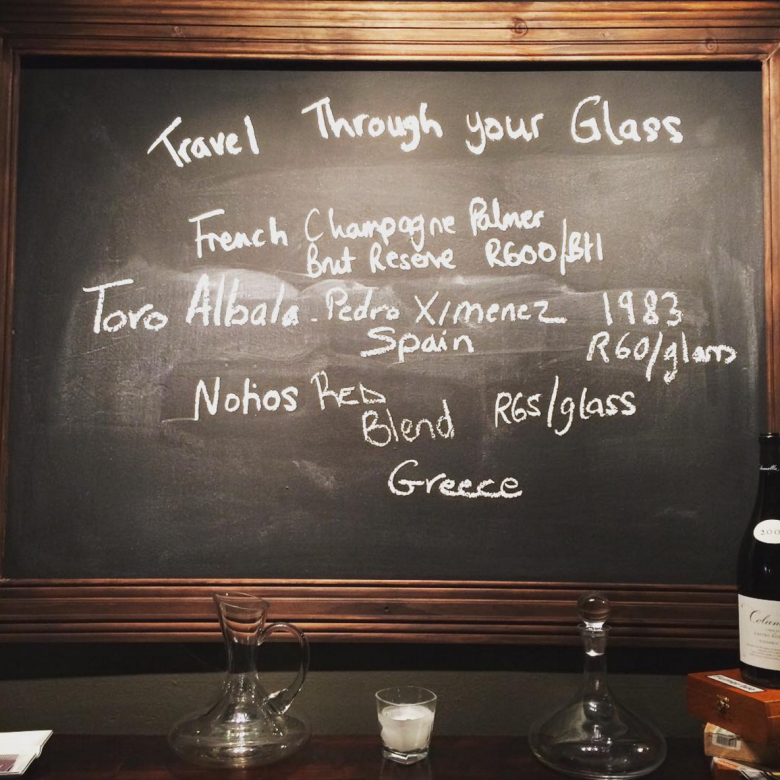 Travel Through your Glass
French Champagne Palmer
Brut Reserve R600/Btl
Toro Albala - Pedro Ximenez 1983
Spain R60/glass
Notios RED
Blend R65/glass
Greece